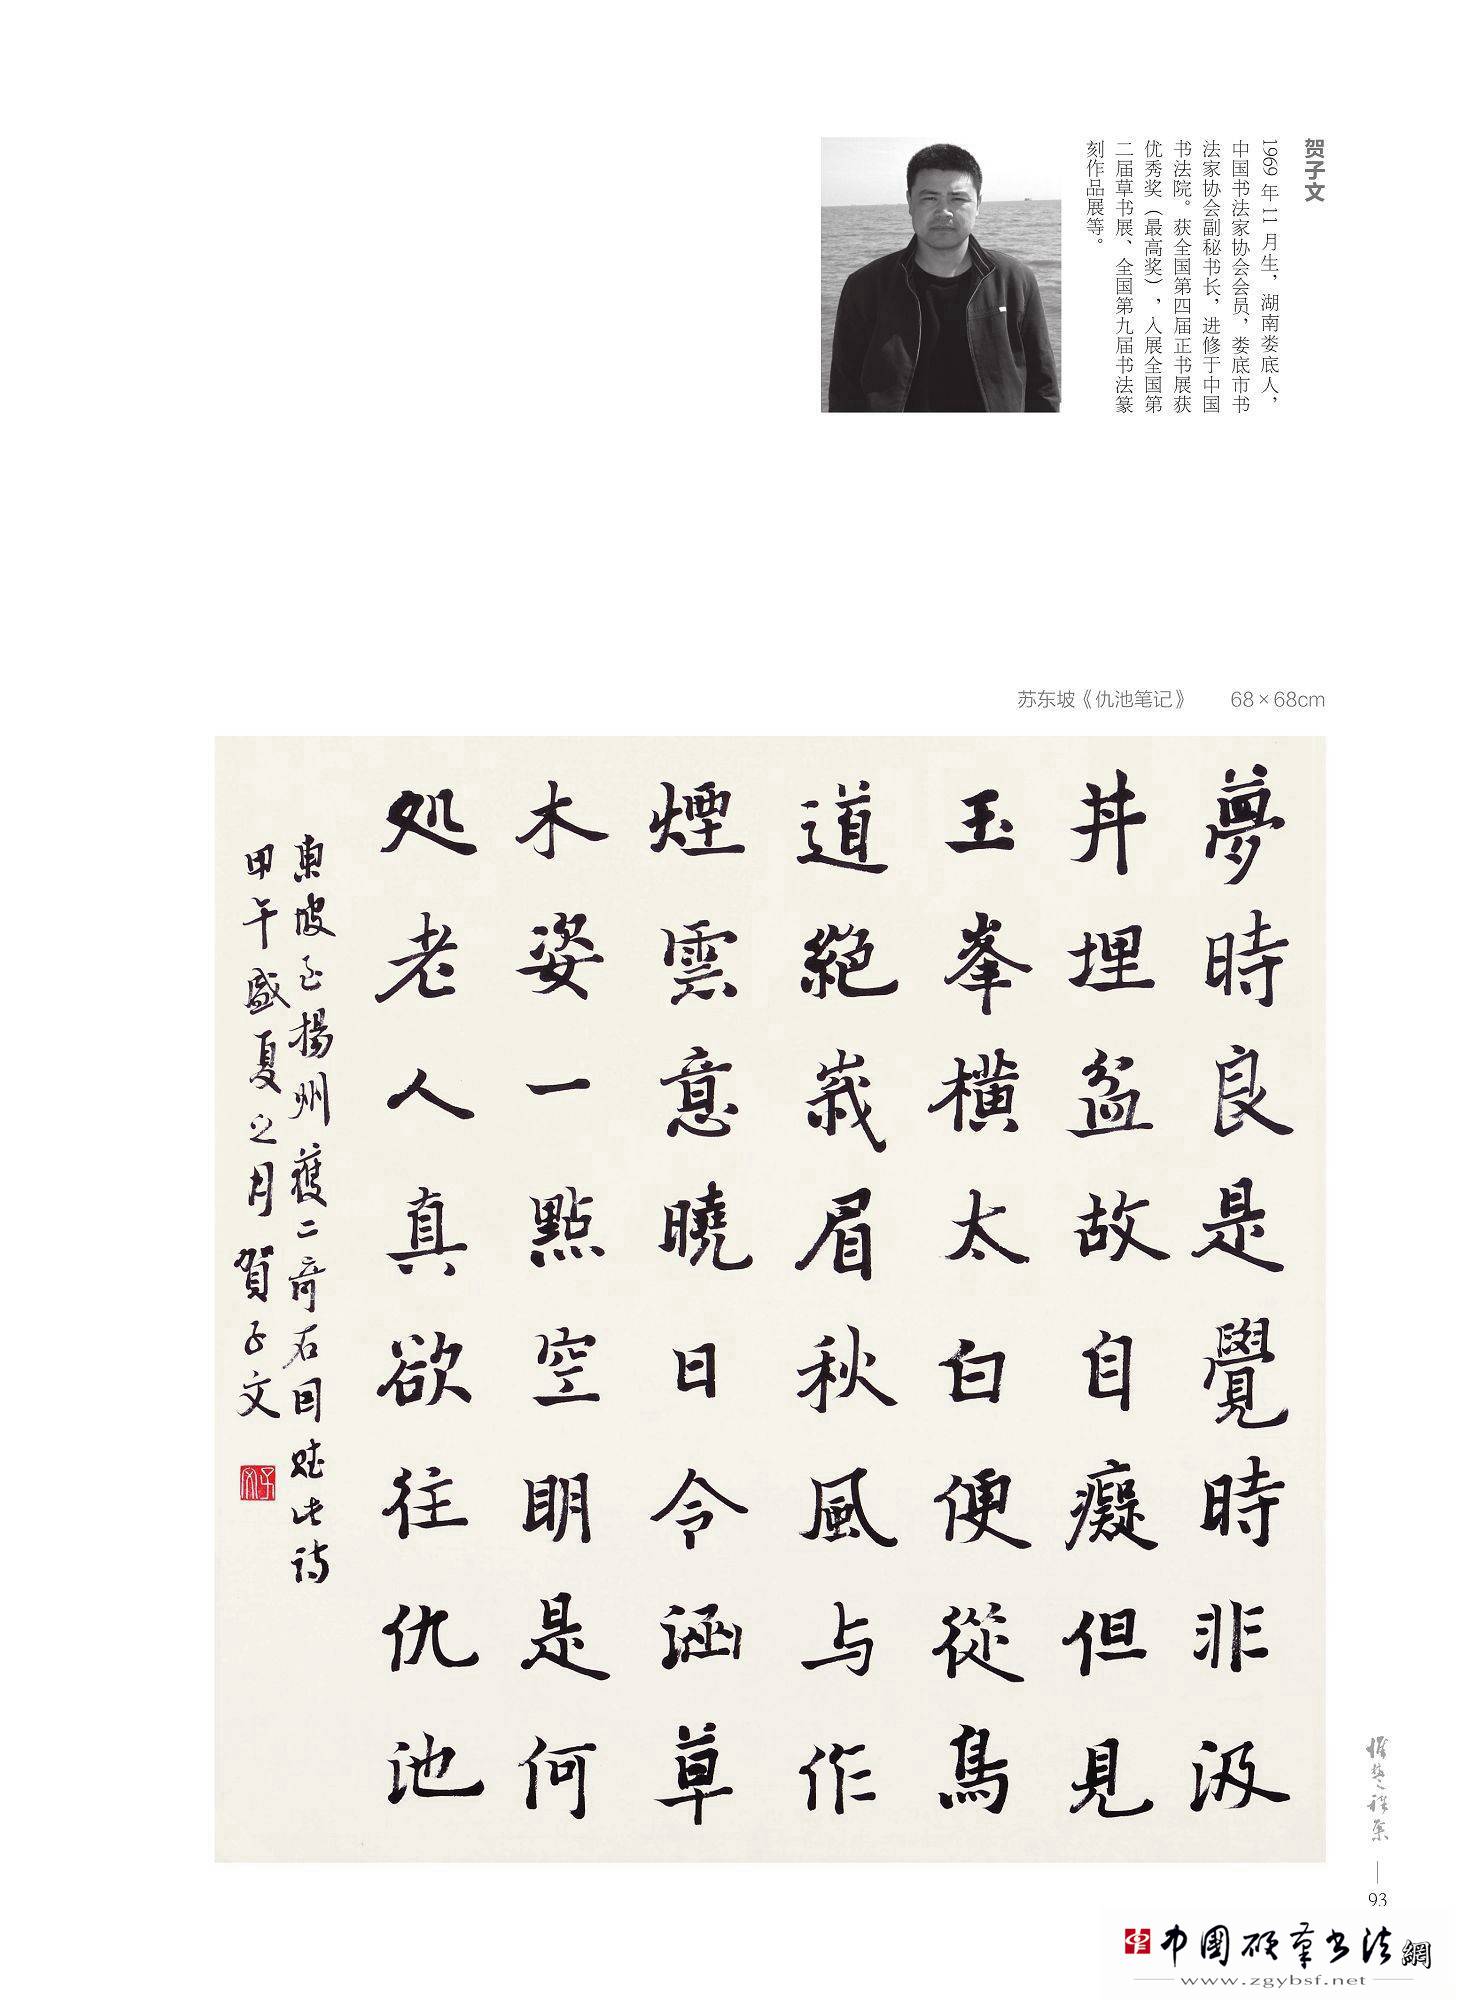 贺子文
1969 年 11 月生，湖南娄底人，
中国书法家协会会员，娄底市书
法家协会副秘书长，进修于中国
书法院。获全国第四届正书展获
优秀奖（最高奖），入展全国第
二届草书展、全国第九届书法篆
刻作品展等。
苏东坡《仇池笔记》 68×68cm
夢時良是覺時非汲
丼埋盆故自癡但見
玉峯橫太白便從鳥
道絕峩眉秋風与作
煙雲意曉日令涵草
木姿一點空明是何
処老人真欲往仇池
東坡至揚州獲二奇石因賦此詩
甲午盛夏之月賀子文
子文
93
中国硬笔书法網
www.zgybsf.net